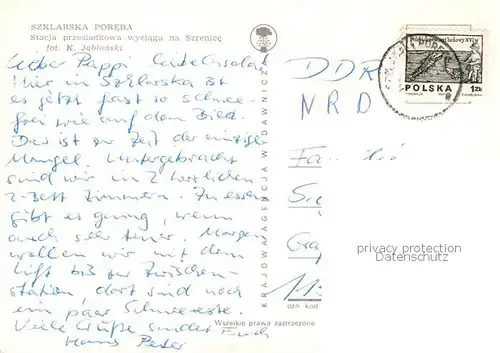 SZKLARSKA PORĘBA
Stacja przesiadkowa wyciągu na Szrenicę
fot. K. Jabłoński
Lieber Pappi
Hier in Szklarska ist
es jetzt fast so schnee-
frei wie auf dem Bild.
Das ist zur Zeit der einzige
Mangel. Untergebracht
sind wir in 2 herzlichen
2-Bett Zimmern. Zu essen
gibt es genug, wenn
auch sehr teuer. Morgen
wollen wir mit dem
Lift bis zur Zwischen-
station, dort sind noch
ein paar Schneereste.
Viele Grüße sendet Euch
Hans Peter
KRAJOWA AGENCJA WYDAWNICZA
Wszelkie prawa zastrzeżone
DDR
NRD
Fa
G
11
ozn kod
POLSKA
1ZŁ
privacy protection
Datenschutz